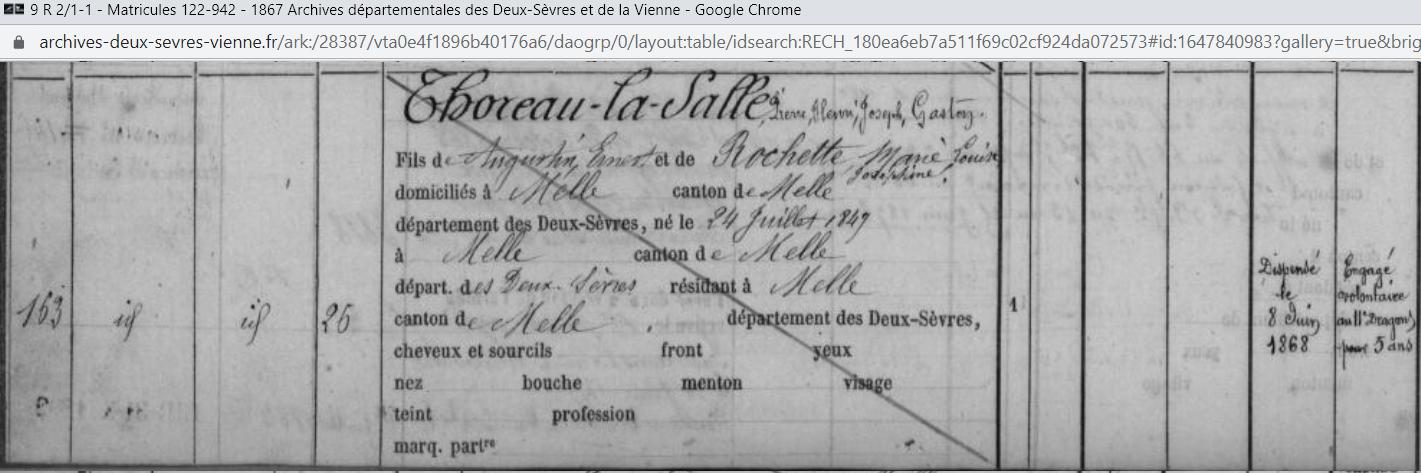 9 R 2/1-1 - Matricules 122-942 - 1867 Archives départementales des Deux-Sèvres et de la Vienne - Google Chrome
archives-deux-sevres-vienne.fr/ark:/28387/vta0e4f1896b40176a6/daogrp/0/layout:table/idsearch:RECH_180ea6eb7a511f69c02cf924da072573#id:1647840983?gallery=true&brig
Thoreau-la-Salle, Pierre, Henri, Joseph, Gaston.
Fils de Augustin, Ernest et de Rochette Marie Louise
Joséphine.
domiciliés à Melle canton de Melle
département des Deux-Sèvres, né le 24 Juillet 1847
à Melle canton de Melle
départ. des Deux-Sèvres résidant à Melle
163 id id 26
canton de Melle département des Deux-Sèvres,
cheveux et sourcils front yeux
nez bouche menton visage
teint profession
marq. partre
1
Dispensé
le
8 Juin
1868
Engagé
volontaire
au 11e Dragons
pour 5 ans